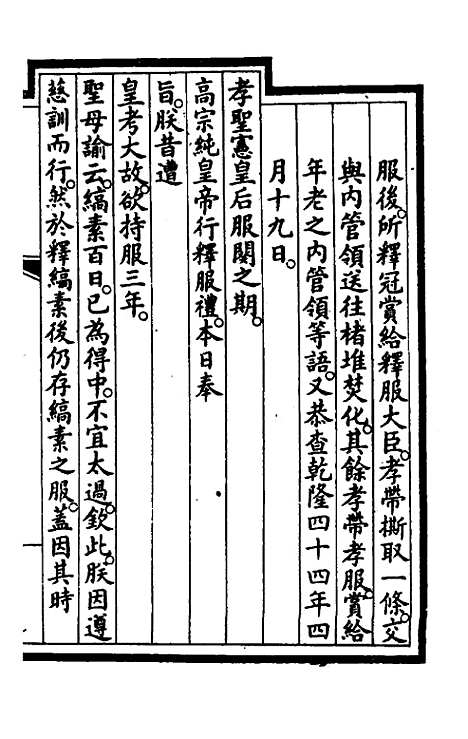 服後。所釋冠賞給釋服大臣。孝帶撕取一條。交
與内管領送往楮堆焚化。其餘孝帶孝服。賞給
年老之内管領等語。又恭查乾隆四十四年四
月十九日。
孝聖憲皇后服闋之期。
高宗純皇帝行釋服禮。本日奉
旨。朕昔遭
皇考大故。欲持服三年。
聖母諭云。縞素百日。已為得中。不宜太過。欽此。朕因遵
慈訓而行。然於釋縞素後仍存縞素之服。蓋因其時